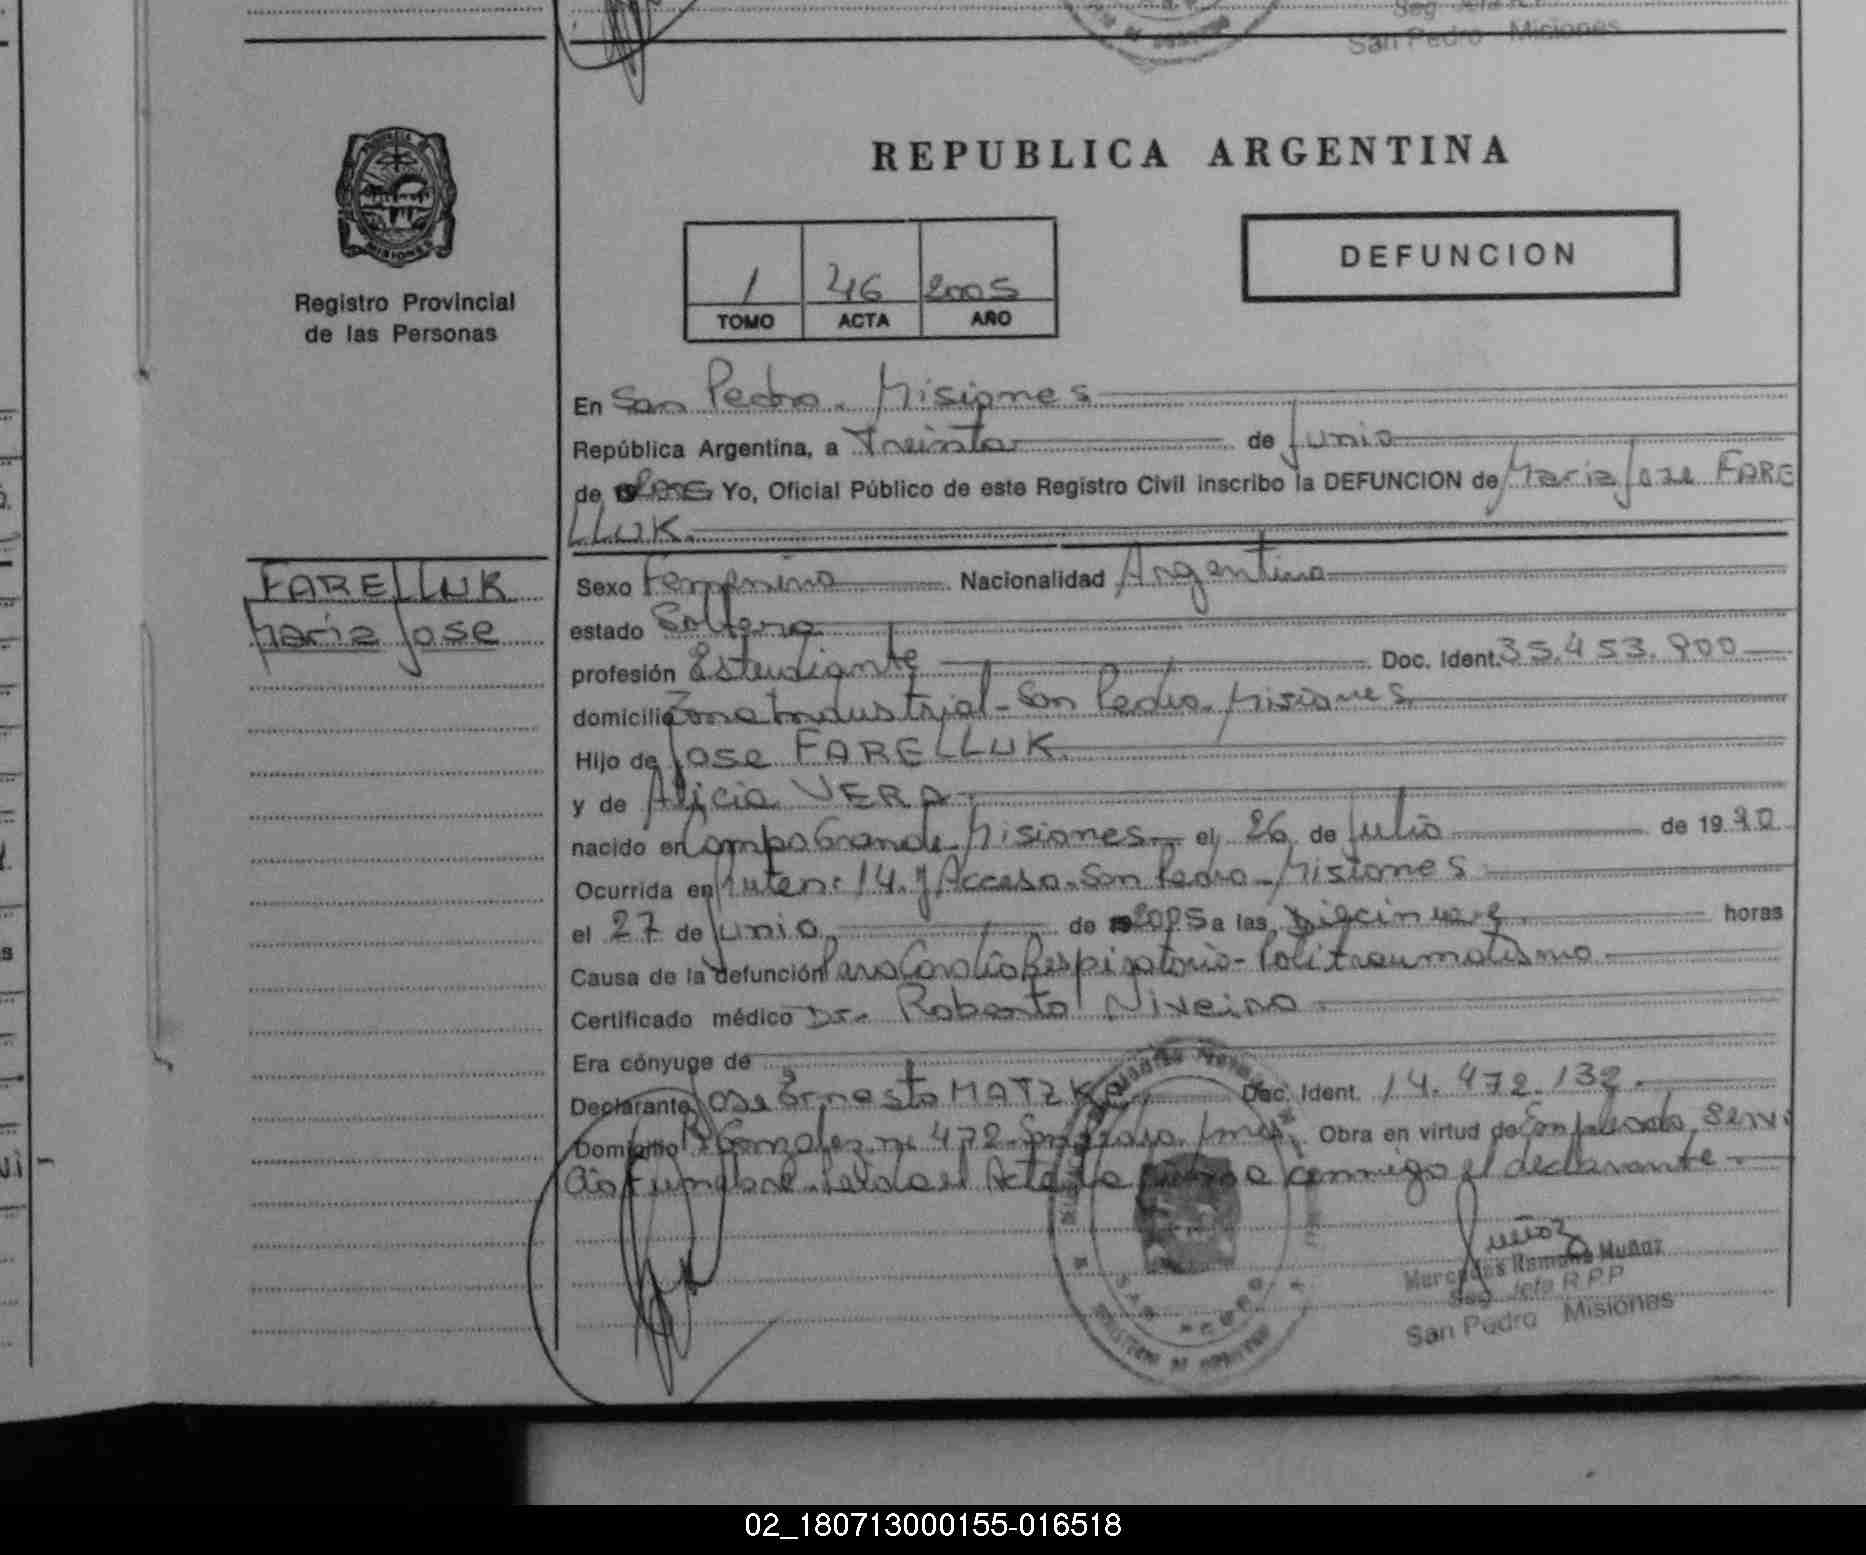 Seg. Jefa R.P.P
San Pedro Misiones
PROVINCIA DE
MISIONES
Registro Provincial
de las Personas
REPUBLICA ARGENTINA
1 46 2005
TOMO ACTA AÑO
DEFUNCION
En San Pedro. Misiones
República Argentina, a Treinta de Junio
de 2005 Yo, Oficial Público de este Registro Civil inscribo la DEFUNCION de Maria Jose FARE
LLUK.
FARELLUK
Maria Jose
Sexo Femenino Nacionalidad Argentina
estado Soltera
profesión Estudiante Doc. Ident. 35.453.900
domicilio Zona Industrial - San Pedro. Misiones
Hijo de Jose FARELLUK.
y de Alicia VERA
nacido en Campo Grande Misiones el 26 de Julio de 1990
Ocurrida en Ruta n: 14. y Acceso. San Pedro - Misiones
el 27 de Junio de 2005 a las Diecinueve horas
Causa de la defunción Paro Cardio Respiratorio - Politraumatismo
Certificado médico Dr. Roberto Niveiro
Era cónyuge de
Declarante Jose Ernesto MATZKE Doc. Ident. 14.472.132.
Domicilio Gonzalez n: 472. San Pedro. Mnes. Obra en virtud de Empleado Servi
cio Funebre. Leida el Acta la firma conmigo el declarante
Muñoz
Mercedes Ramona Muñoz
Seg. Jefa R.P.P
San Pedro Misiones
02_180713000155-016518